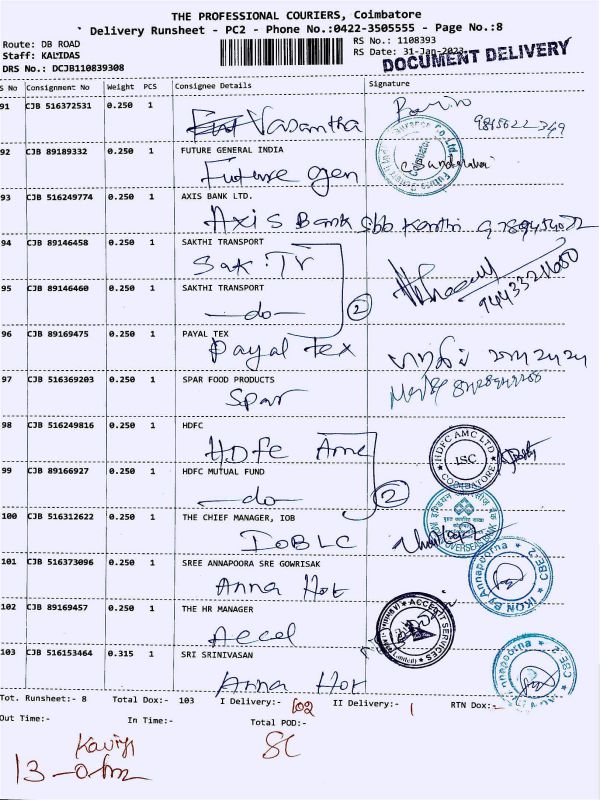 THE PROFESSIONAL COURIERS, Coimbatore
Delivery Runsheet - PC2 - Phone No.:0422-3505555 - Page No.:8
Route: DB ROAD RS No.: 1108393
Staff: KALIDAS RS Date: 31-Jan-2023
DRS No.: DCJB110839308 DOCUMENT DELIVERY
S No Consignment No Weight PCS Consignee Details Signature
91 CJB 516372531 0.250 1
Vasantha
92 CJB 89189332 0.250 1 FUTURE GENERAL INDIA
Future Gen
93 CJB 516249774 0.250 1 AXIS BANK LTD.
Axis Bank
94 CJB 89146458 0.250 1 SAKTHI TRANSPORT
Sak. Tr
95 CJB 89146460 0.250 1 SAKTHI TRANSPORT
-do- 2
96 CJB 89169475 0.250 1 PAYAL TEX
Payal Tex
97 CJB 516369203 0.250 1 SPAR FOOD PRODUCTS
Spar
98 CJB 516249816 0.250 1 HDFC
HDFC Amc
HDFC AMC LTD
ISC
COIMBATORE
99 CJB 89166927 0.250 1 HDFC MUTUAL FUND
-do- 2
100 CJB 516312622 0.250 1 THE CHIEF MANAGER, IOB
IOB LC
101 CJB 516373096 0.250 1 SREE ANNAPOORA SRE GOWRISAK
Anna Hot
IKON By Annapoorna ★ CBE-2. ★
102 CJB 89169457 0.250 1 THE HR MANAGER
Accel
ACCENT SERVICES
103 CJB 516153464 0.315 1 SRI SRINIVASAN
Anna Hot
Annapoorna ★ CBE-2
Tot. Runsheet:- 8 Total Dox:- 103 I Delivery:- 102 II Delivery:- 1 RTN Dox:-
Out Time:- In Time:- Total POD:-